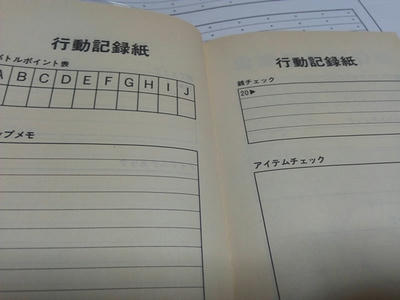 行動記録紙
バトルポイント表
A B C D E F G H I J
ップメモ
行動記録紙
銭チェック
20▶
アイテムチェック